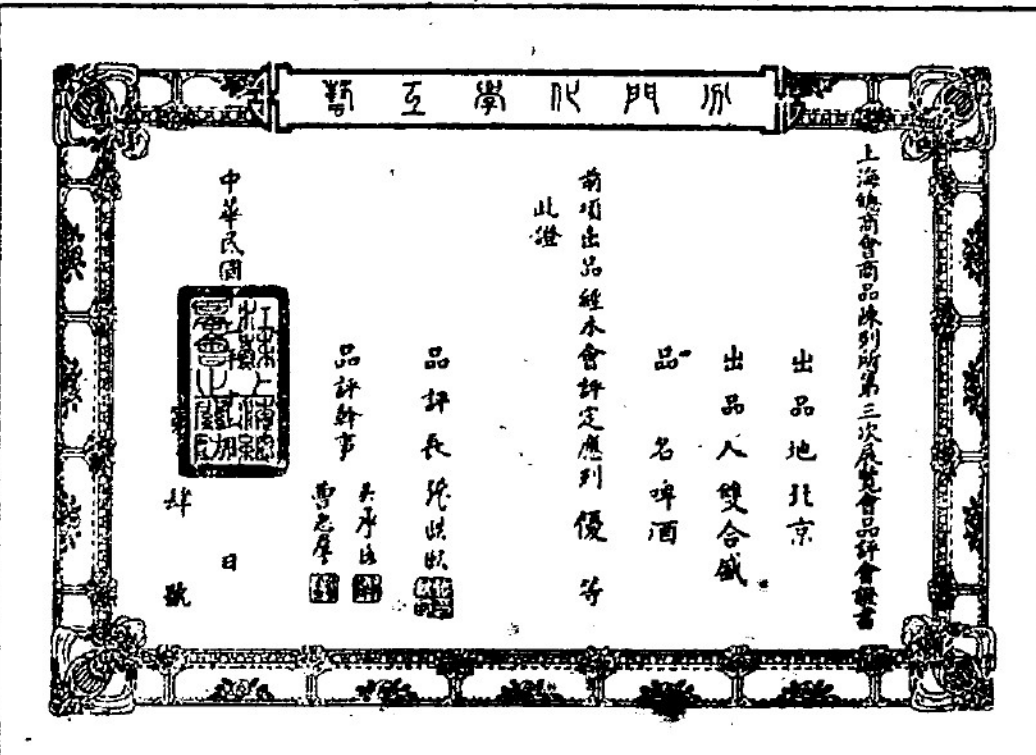 分門化學工藝
上海總商會商品陳列所第三次展覽會品評會證書
出品地北京
出品人雙合盛
品名啤酒
前項出品經本會評定應列優等
此證
品評長
品評幹事
吳承洛
曹惠羣
中華民國
日
肆號